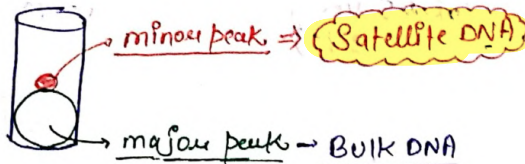 minor peak ⇒ Satellite DNA
major peak → BULK DNA